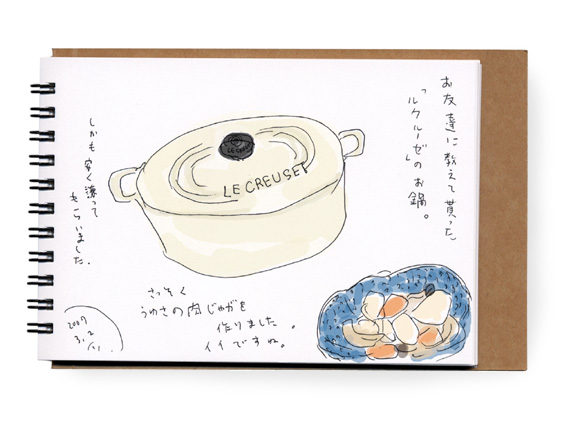 お友達に教えて貰った
「ルクルーゼ」のお鍋。
LE CREUSET
しかも安く譲って
もらいました.
さっそく
うわさの肉じゃがを
作りました。
イイですね。
2007
3.2